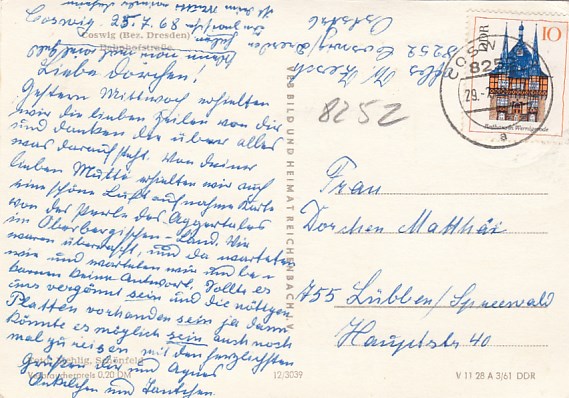 Coswig 25.7.68
Coswig (Bez. Dresden)
Bahnhofstraße
Liebe Dorchen!
Gestern Mittwoch erhielten
wir die lieben Zeilen von dir
und danken dir über alles
was darauf steht. Von deiner
lieben Mutti erhielten wir auch
eine schöne Luftaufnahme Karte
von der Perle des Aggertales
im Oberbergischen-Land. Wir
waren überrascht, und da warteten
wir und warteten wir und be-
kamen keine Antwort. Sollte es
uns vergönnt sein und die nötigen
Platten vorhanden sein ja dann
könnte es möglich sein auch noch
mal zu reisen mit den herzlichsten
Grüßen dir und Agnes
Onkelchen und Tantchen
Schönfeld
Verbraucherpreis 0,20 DM
12/3039
VEB BILD UND HEIMAT REICHENBACH i. V.
8252 Coswig Dresden
8252
DDR
10
COSWIG
8252
29.-7.
a
Rathaus in Wernigerode
Frau
Dorchen Matthäi
755 Lübben/Spreewald
Hauptstr 40
V 11 28 A 3/61 DDR